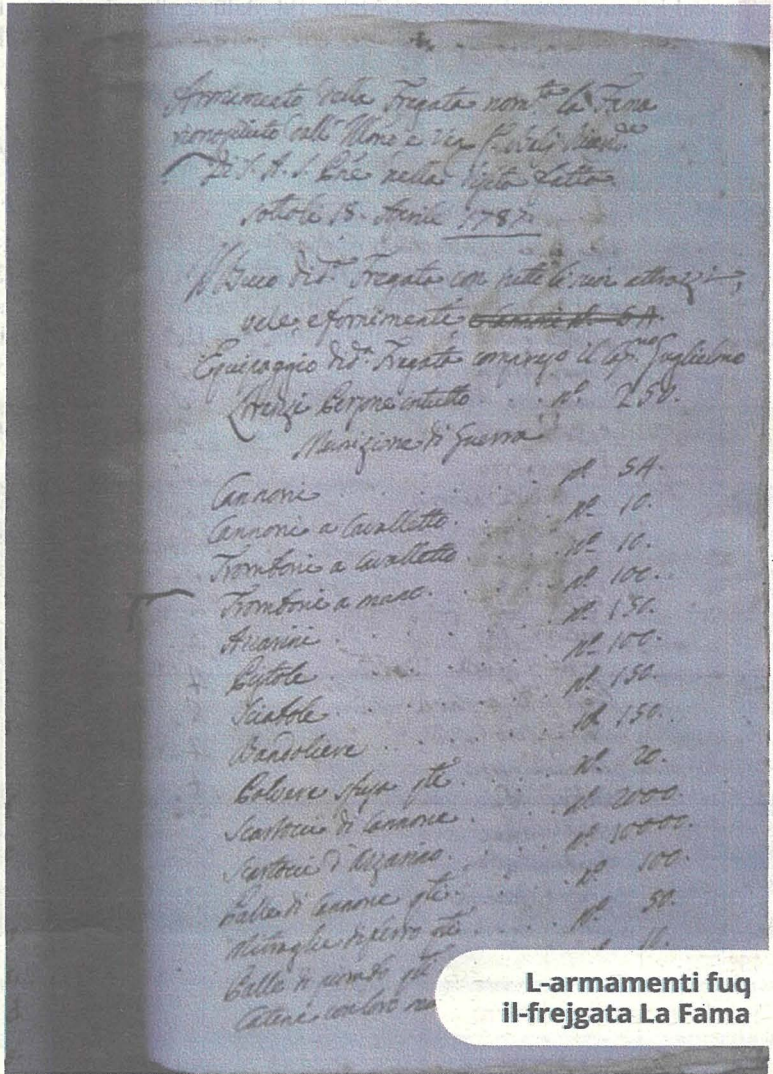 Armamento della Fregata nom.ta la Fama
Di S. A. S.
sotto li 18. Aprile 1787.
Il Buco di d.a Fregata con tutti li suoi attrazzi,
vele, e fornimenti
Equipaggio di d.a Fregata compreso il Cap.no Guglielmo
Lorenzi Persone in tutto . . . n.o 250.
Munizione di Guerra
Cannoni . . . n.o 54.
Cannoni a Cavalletto . . . n.o 10.
Tromboni a Cavalletto . . . n.o 10.
Tromboni a mano . . . n.o 100.
Azzarini . . . n.o 150.
Pistole . . . n.o 100.
Sciabole . . . n.o 150.
Bandoliere . . . n.o 150.
Polvere q.li . . . n.o 20.
Scartocci di Cannone . . . n.o 2000.
Scartocci d'Azzarino . . . n.o 10000.
Balle di Cannone q.li . . . n.o 100.
Mitraglie di ferro q.li . . . n.o 50.
Balle di piombo q.li
Catene con loro
L-armamenti fuq
il-frejgata La Fama